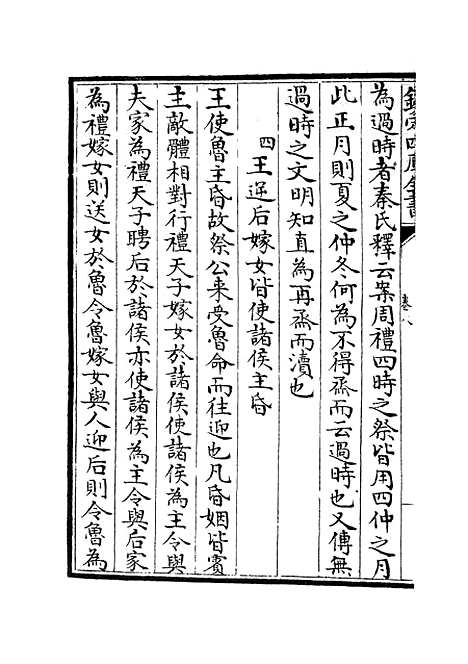 欽定四庫全書
卷八
為過時者秦氏釋云案周禮四時之祭皆用四仲之月
此正月則夏之仲冬何為不得烝而云過時也又傳無
過時之文明知直為再烝而瀆也
四王逆后嫁女皆使諸侯主昏
王使魯主昏故祭公来受魯命而往迎也凡昏姻皆賓
主敵體相對行禮天子嫁女於諸侯使諸侯為主令與
夫家為禮天子聘后於諸侯亦使諸侯為主令與后家
為禮嫁女則送女於魯令魯嫁女與人迎后則令魯為